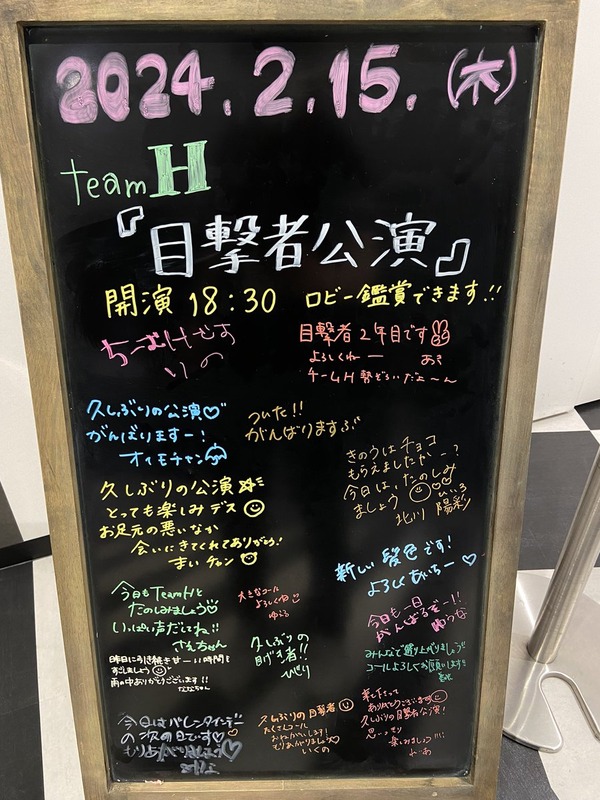 2024.2.15.(木)
team H
『目撃者公演』
開演 18:30 ロビー鑑賞できます!!
ちーむHです
りの
目撃者2年目です
よろしくねー
あき
チームH勢ぞろいだよ〜ん
久しぶりの公演♡
がんばりますー!
オイモチャン
ついた!!
がんばりますぶ
きのうはチョコ
もらえましたかー?
今日は、たのしみ
ましょう
北川 陽彩
久しぶりの公演
とっても楽しみデス
お足元の悪いなか
会いにきてくれてありがとう!
まいチャン
新しい髪色です!
よろしくあいちー♡
今日もTeamHと
たのしみましょう♡
いっぱい声だしてね!!
さえちゃん
大きなコール
よろしくね
ゆいる
今日も一日
がんばるぞー!!
ゆうな
久しぶりの
目撃者!!
ひいり
みんなで盛り上がりましょう
コールよろしくお願いします
昨日に引き続き
すごしましょう
雨の中ありがとうございます!!
ななちゃん
今日はバレンタインデー
の次の日です♡
もりあがりましょう♡
久しぶりの目撃者
たくさんコール
おねがいします!
もりあがりましょ
いくの
来て下さって
ありがとうございます
久しぶりの目撃者公演!
思いっきり
楽しみましょ!!!